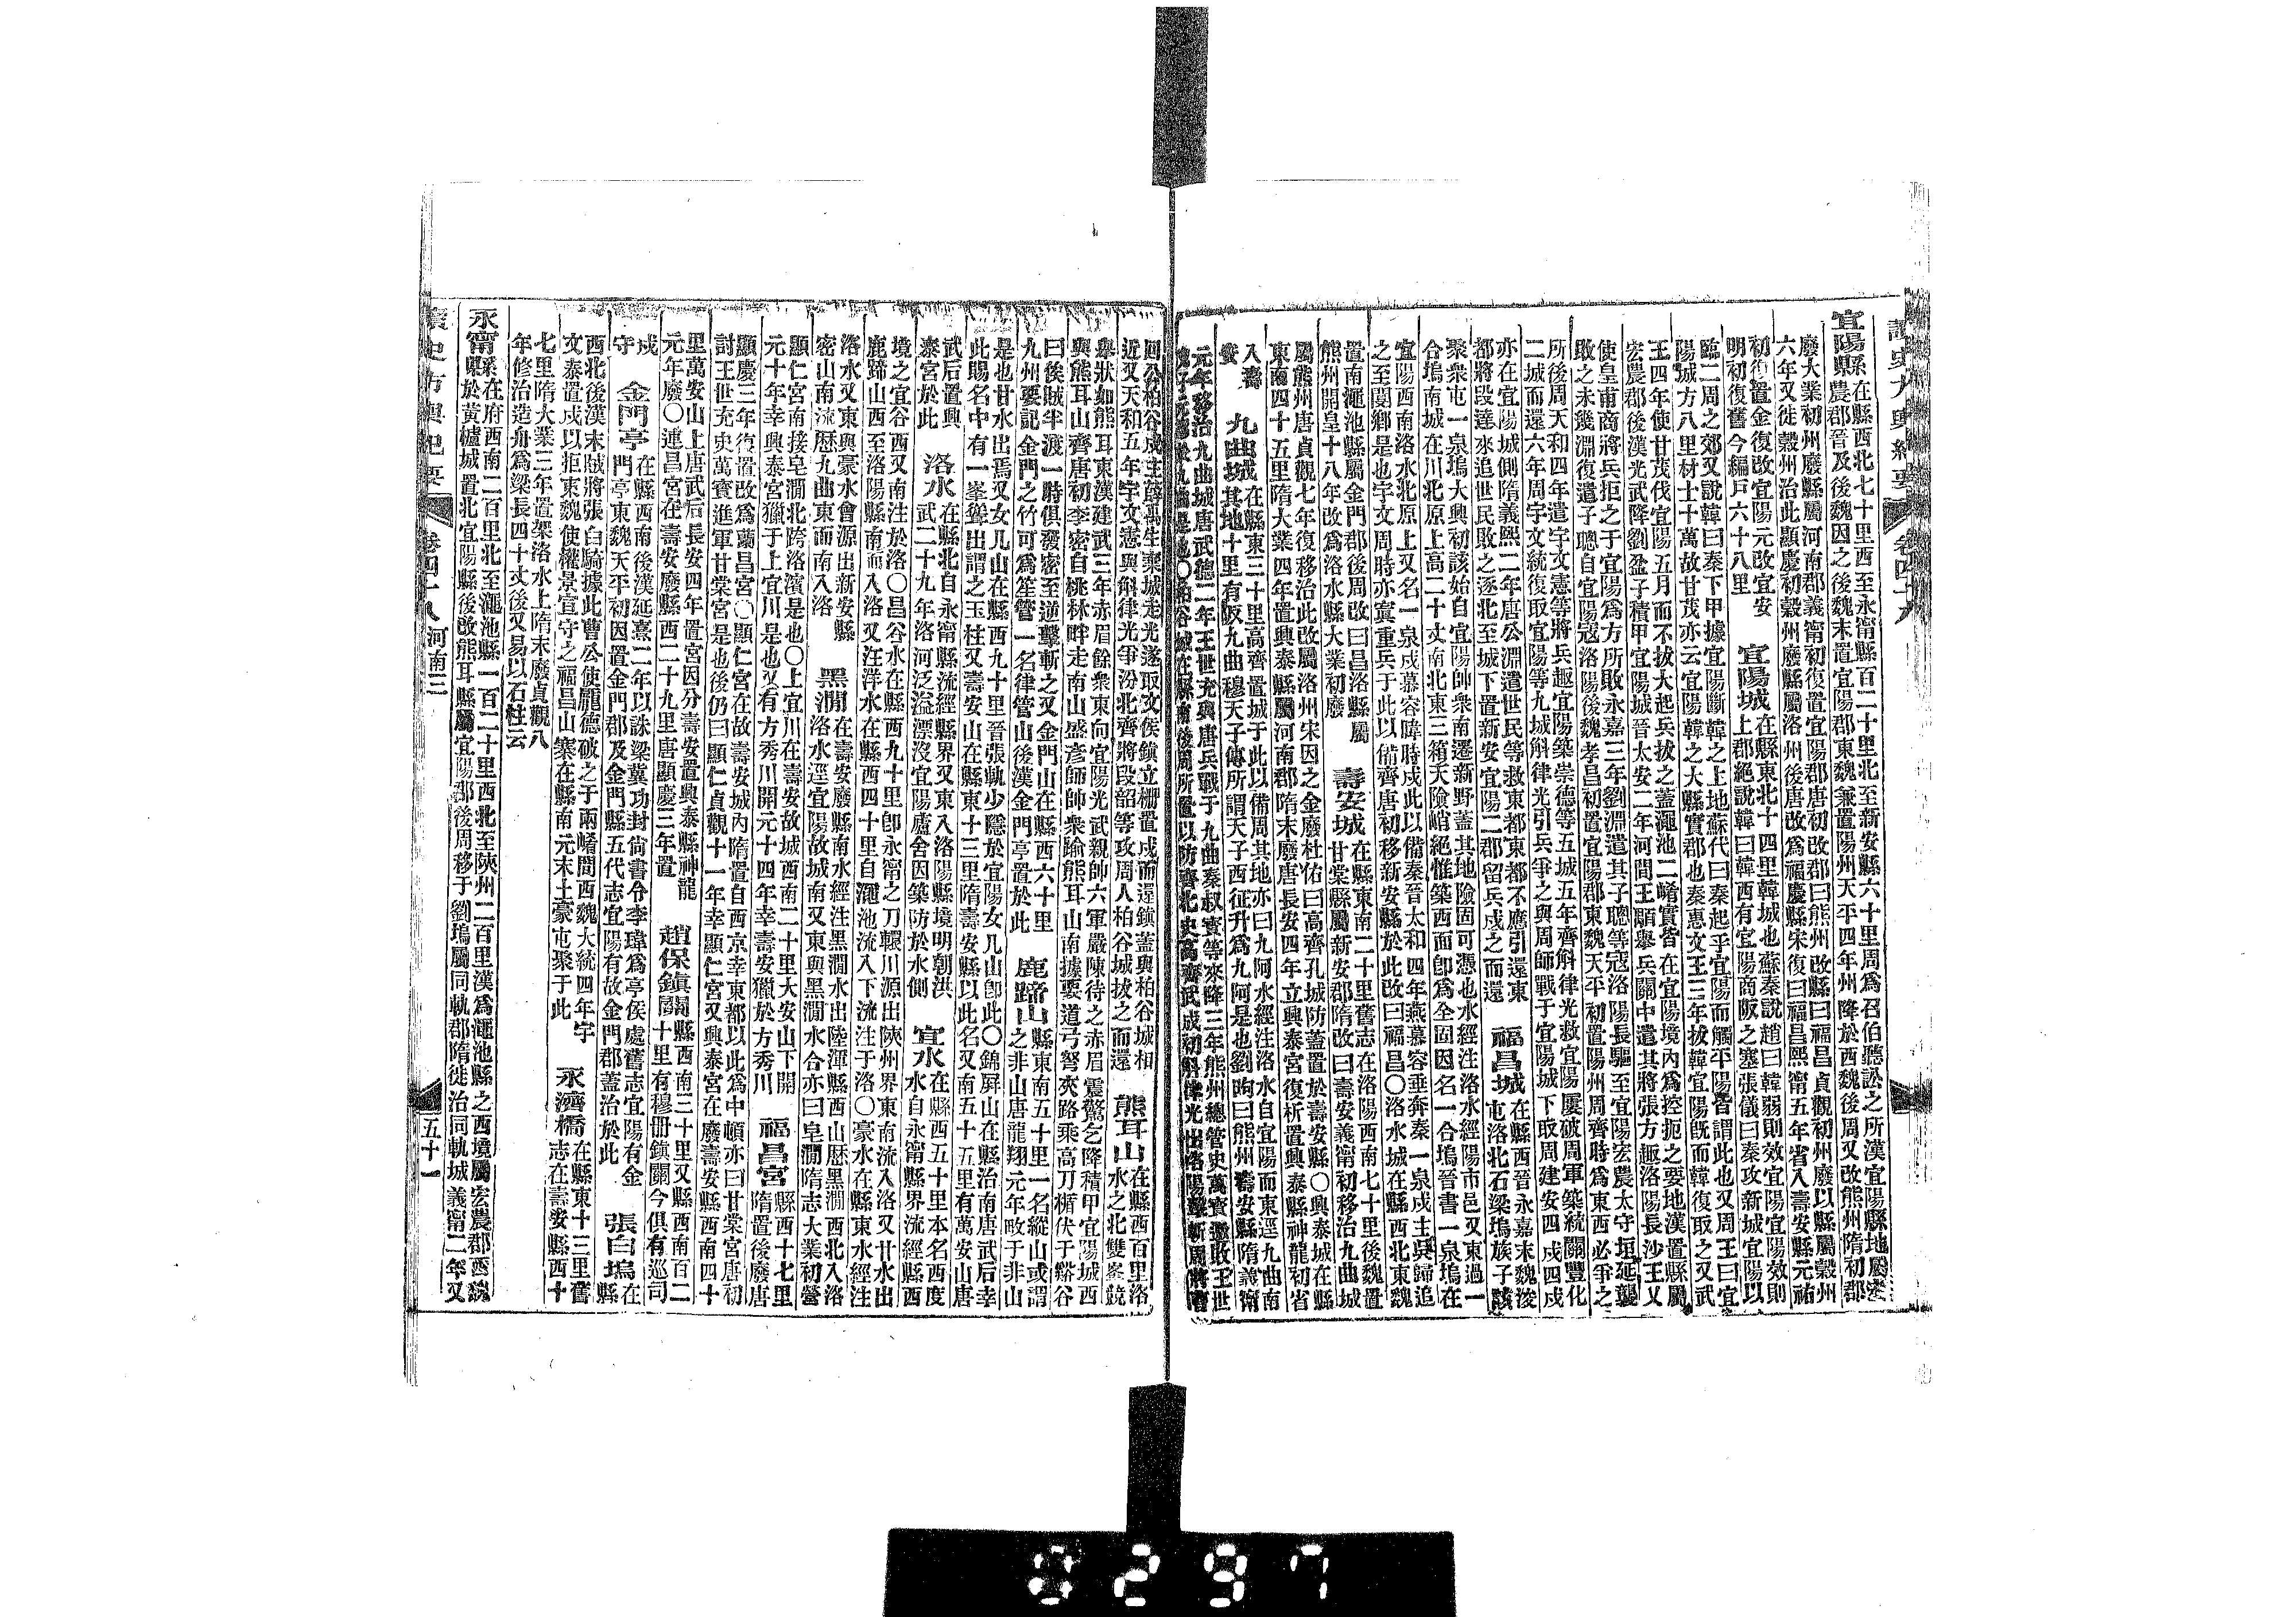 宜陽縣在縣西北七十里西至永甯縣百二十里北至新安縣六十里周爲召伯聽訟之所漢宜陽縣地屬宏
農郡晉及後魏因之後魏末置宜陽郡東魏兼置陽州天平四年州降於西魏後周又改熊州隋初郡
廢大業初州廢縣屬河南郡義甯初復置宜陽郡唐初改郡曰熊州改縣曰福昌貞觀初州廢以縣屬穀州
六年又徙穀州治此顯慶初穀州廢縣屬洛州後唐改爲福慶縣宋復曰福昌熙甯五年省入壽安縣元祐
初復置金復改宜陽元改宜安
明初復舊今編戶六十八里
宜陽城在縣東北十四里韓城也蘇秦說趙曰韓弱則效宜陽宜陽效則
上郡絕說韓曰韓西有宜陽商阪之塞張儀曰秦攻新城宜陽以
臨二周之郊又說韓曰秦下甲據宜陽斷韓之上地蘇代曰秦起乎宜陽而觸平陽皆謂此也又周王曰宜
陽城方八里材士十萬故甘茂亦云宜陽韓之大縣實郡也秦惠文王三年拔韓宜陽既而韓復取之又武
王四年使甘茂伐宜陽五月而不拔大起兵拔之蓋澠池二崤實皆在宜陽境內爲控扼之要地漢置縣屬
宏農郡後漢光武降劉盆子積甲宜陽城晉太安二年河間王顒舉兵關中遣其將張方趣洛陽長沙王乂
使皇甫商將兵拒之于宜陽爲方所敗永嘉三年劉淵遣其子聰等寇洛陽長驅至宜陽宏農太守垣延襲
敗之未幾淵復遣子聰自宜陽寇洛陽後魏孝昌初置宜陽郡東魏天平初置陽州周齊時爲東西必爭之
所後周天和四年遣宇文憲等將兵趣宜陽築崇德等五城五年齊斛律光救宜陽屢破周軍築統關豐化
二城而還六年周宇文統復取宜陽等九城斛律光引兵爭之與周師戰于宜陽城下取周建安四戍四戍
亦在宜陽城側隋義熙二年唐公淵遣世民等救東都東都不應引還東
都將段達來追世民敗之逐北至城下置新安宜陽二郡留兵戍之而還
福昌城在縣西晉永嘉末魏浚
屯洛北石梁塢族子該
聚衆屯一泉塢大興初該始自宜陽帥衆南遷新野蓋其地險固可憑也水經注洛水經陽市邑又東過一
合塢南城在川北原上高二十丈南北東三箱天險峭絕惟築西面卽爲全固因名一合塢晉書一泉塢在
宜陽西南洛水北原上又名一泉戍慕容暐時戍此以備秦晉太和四年燕慕容垂奔秦一泉戍主吳歸追
之至閿鄉是也宇文周時亦寘重兵于此以備齊唐初移新安縣於此改曰福昌〇洛水城在縣西北東魏
置南澠池縣屬金門郡後周改曰昌洛縣屬
熊州開皇十八年改爲洛水縣大業初廢
壽安城在縣東南二十里舊志在洛陽西南七十里後魏置
甘棠縣屬新安郡隋改曰壽安義甯初移治九曲城
屬熊州唐貞觀七年復移治此改屬洛州宋因之金廢杜佑曰高齊孔城防蓋置於壽安縣〇興泰城在縣
東南四十五里隋大業四年置興泰縣屬河南郡隋末廢唐長安四年立興泰宮復析置興泰縣神龍初省
入壽
安
九曲城在縣東三十里高齊置城于此以備周其地亦曰九阿水經注洛水自宜陽而東逕九曲南
其地十里有阪九曲穆天子傳所謂天子西征升爲九阿是也劉昫曰熊州壽安縣隋義甯
元年移治九曲城唐武德二年王世充與唐兵戰于九曲秦叔寶等來降三年熊州總管史萬寶邀敗王世
四公柏谷戍主薛禹生棄城走光遂取文侯鎮立柵置戍而還鎮蓋與柏谷城相
近又天和五年宇文憲與斛律光爭汾北齊將段韶等攻周人柏谷城拔之而還
熊耳山在縣西百里洛
水之北雙峯競
舉狀如熊耳東漢建武三年赤眉餘衆東向宜陽光武親帥六軍嚴陳待之赤眉震驚乞降積甲宜陽城西
與熊耳山齊唐初李密自桃林畔走南山盛彥師帥衆踰熊耳山南據要道弓弩夾路乘高刀楯伏于谿谷
曰俟賊半渡一時俱發密至逆擊斬之又金門山在縣西六十里
九州要記金門之竹可爲笙管一名律管山後漢金門亭置於此
鹿蹄山縣東南五十里一名縱山或謂
之非山唐龍翔元年畋于非山
是也甘水出焉又女几山在縣西九十里晉張軌少隱於宜陽女几山卽此〇錦屏山在縣治南唐武后幸
此賜名中有一峯聳出謂之玉柱又壽安山在縣東十三里隋壽安縣以此名又南五十五里有萬安山唐
武后置興
泰宮於此
洛水在縣北自永甯縣流經縣界又東入洛陽縣境明朝洪
武二十九年洛河泛溢漂沒宜陽廬舍因築防於水側
宜水在縣西五十里本名西度
水自永甯縣界流經縣西
境之宜谷西又南注於洛〇昌谷水在縣西九十里卽永甯之刀轘川源出陝州界東南流入洛又甘水出
鹿蹄山西至洛陽縣南而入洛又汪洋水在縣西四十里自澠池流入下流注于洛〇豪水在縣東水經注
洛水又東與豪水會源出新安縣
密山南流歷九曲東而南入洛
黑澗在壽安廢縣南水經注黑澗水出陸渾縣西山歷黑澗西北入洛
洛水逕宜陽故城南又東與黑澗水合亦曰皂澗隋志大業初營
顯仁宮南接皂澗北跨洛濱是也〇上宜川在壽安故城西南二十里大安山下開
元十年幸興泰宮獵于上宜川是也又有方秀川開元十四年幸壽安獵於方秀川
福昌宮縣西十七里
隋置後廢唐
顯慶三年復置改爲蘭昌宮〇顯仁宮在故壽安城內隋置自西京幸東都以此爲中頓亦曰甘棠宮唐初
討王世充史萬寶進軍甘棠宮是也後仍曰顯仁貞觀十一年幸顯仁宮又興泰宮在廢壽安縣西南四十
里萬安山上唐武后長安四年置宮因分壽安置興泰縣神龍
元年廢〇連昌宮在壽安廢縣西二十九里唐顯慶三年置
趙保鎮關縣西南三十里又縣西南百二
十里有穆冊鎮關今俱有巡司
戍
守
金門亭在縣西南後漢延熹二年以誅梁冀功封尙書令李瑋爲亭侯處舊志宜陽有金
門亭東魏天平初因置金門郡及金門縣五代志宜陽有故金門郡蓋治於此
張白塢在
縣
西北後漢末賊將張白騎據此曹公使龐德破之于兩崤間西魏大統四年宇
文泰置戍以拒東魏使權景宣守之福昌山寨在縣南元末土豪屯聚于此
永濟橋在縣東十三里舊
志在壽安縣西十
七里隋大業三年置架洛水上隋末廢貞觀八
年修治造舟爲梁長四十丈後又易以石柱云
永甯縣在府西南二百里北至澠池縣一百二十里西北至陝州二百里漢爲澠池縣之西境屬宏農郡西魏
縣於黃櫨城置北宜陽縣後改熊耳縣屬宜陽郡後周移于劉塢屬同軌郡隋徙治同軌城義甯二年又
卷四十八 河南三
五十一
0297